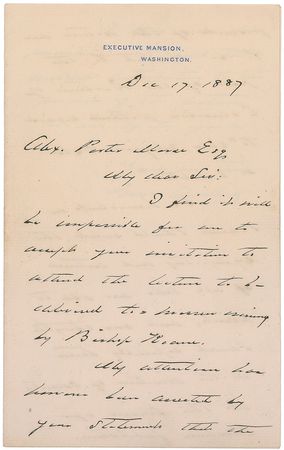 EXECUTIVE MANSION,
WASHINGTON.
Dec 17, 1887
Alex. Porter Morse Esq
My dear Sir:
I find it will
be impossible for me to
accept your invitation to
attend the lecture to be
delivered to-morrow evening
by Bishop Keane.
My attention has
however been arrested by
your statement that the